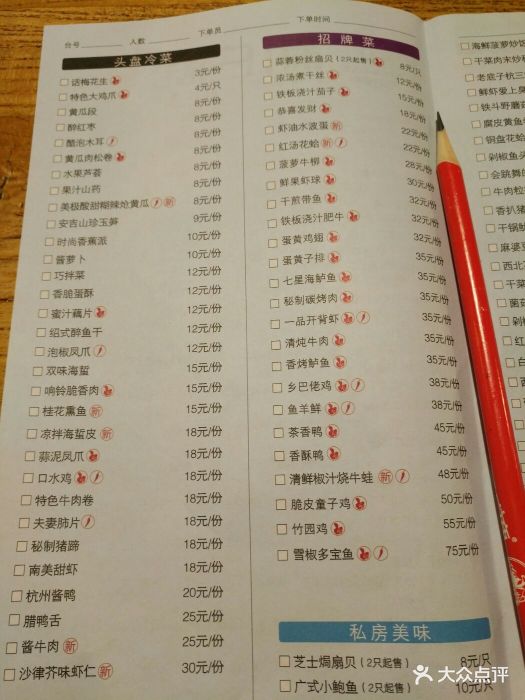 台号 人数 下单员 下单时间
头盘冷菜
话梅花生 3元/份
特色大鸡爪 4元/只
黄瓜段 8元/份
醉红枣 8元/份
醋泡木耳 8元/份
黄瓜肉松卷 8元/份
水果芦荟 8元/份
果汁山药 8元/份
美极酸甜糊辣炝黄瓜 新 8元/份
安吉山珍玉笋 9元/份
时尚香蕉派 10元/份
酱萝卜 10元/份
巧拌菜 12元/份
香脆蛋酥 12元/份
蜜汁藕片 12元/份
绍式醉鱼干 12元/份
泡椒凤爪 12元/份
双味海蜇 15元/份
响铃脆香肉 15元/份
桂花熏鱼 新 15元/份
凉拌海蜇皮 新 18元/份
蒜泥凤爪 18元/份
口水鸡 18元/份
特色牛肉卷 18元/份
夫妻肺片 18元/份
秘制猪蹄 18元/份
南美甜虾 18元/份
杭州酱鸭 20元/份
腊鸭舌 25元/份
酱牛肉 新 25元/份
沙律芥味虾仁 新 30元/份
招牌菜
蒜蓉粉丝扇贝(2只起售) 8元/只
浓汤煮干丝 12元/份
铁板浇汁茄子 15元/份
恭喜发财 18元/份
虾油水波蛋 新 22元/份
红汤花蛤 新 22元/份
菠萝牛柳 28元/份
鲜果虾球 30元/份
干煎带鱼 32元/份
铁板浇汁肥牛 32元/份
蛋黄鸡翅 32元/份
蛋黄子排 35元/份
七星海鲈鱼 35元/份
秘制碳烤肉 35元/份
一品开背虾 35元/份
清炖牛肉 35元/份
香烤鲈鱼 35元/份
乡巴佬鸡 38元/份
鱼羊鲜 38元/份
茶香鸭 45元/份
香酥鸭 45元/份
清鲜椒汁烧牛蛙 新 48元/份
脆皮童子鸡 50元/份
竹园鸡 55元/份
雪椒多宝鱼 75元/份
私房美味
芝士焗扇贝(2只起售) 8元/只
广式小鲍鱼(2只起售) 10元/只
海鲜菠萝炒饭
干菜肉末炒
老底子杭三
鲜虾爱上臭
铁斗野蘑
腐皮黄鱼
铜盘花蛤
剁椒鱼头
会跳舞的
牛肉粒
香扒猪
干锅鱿
麻婆豆
西北
干菜
菌菇
剁椒
大众点评